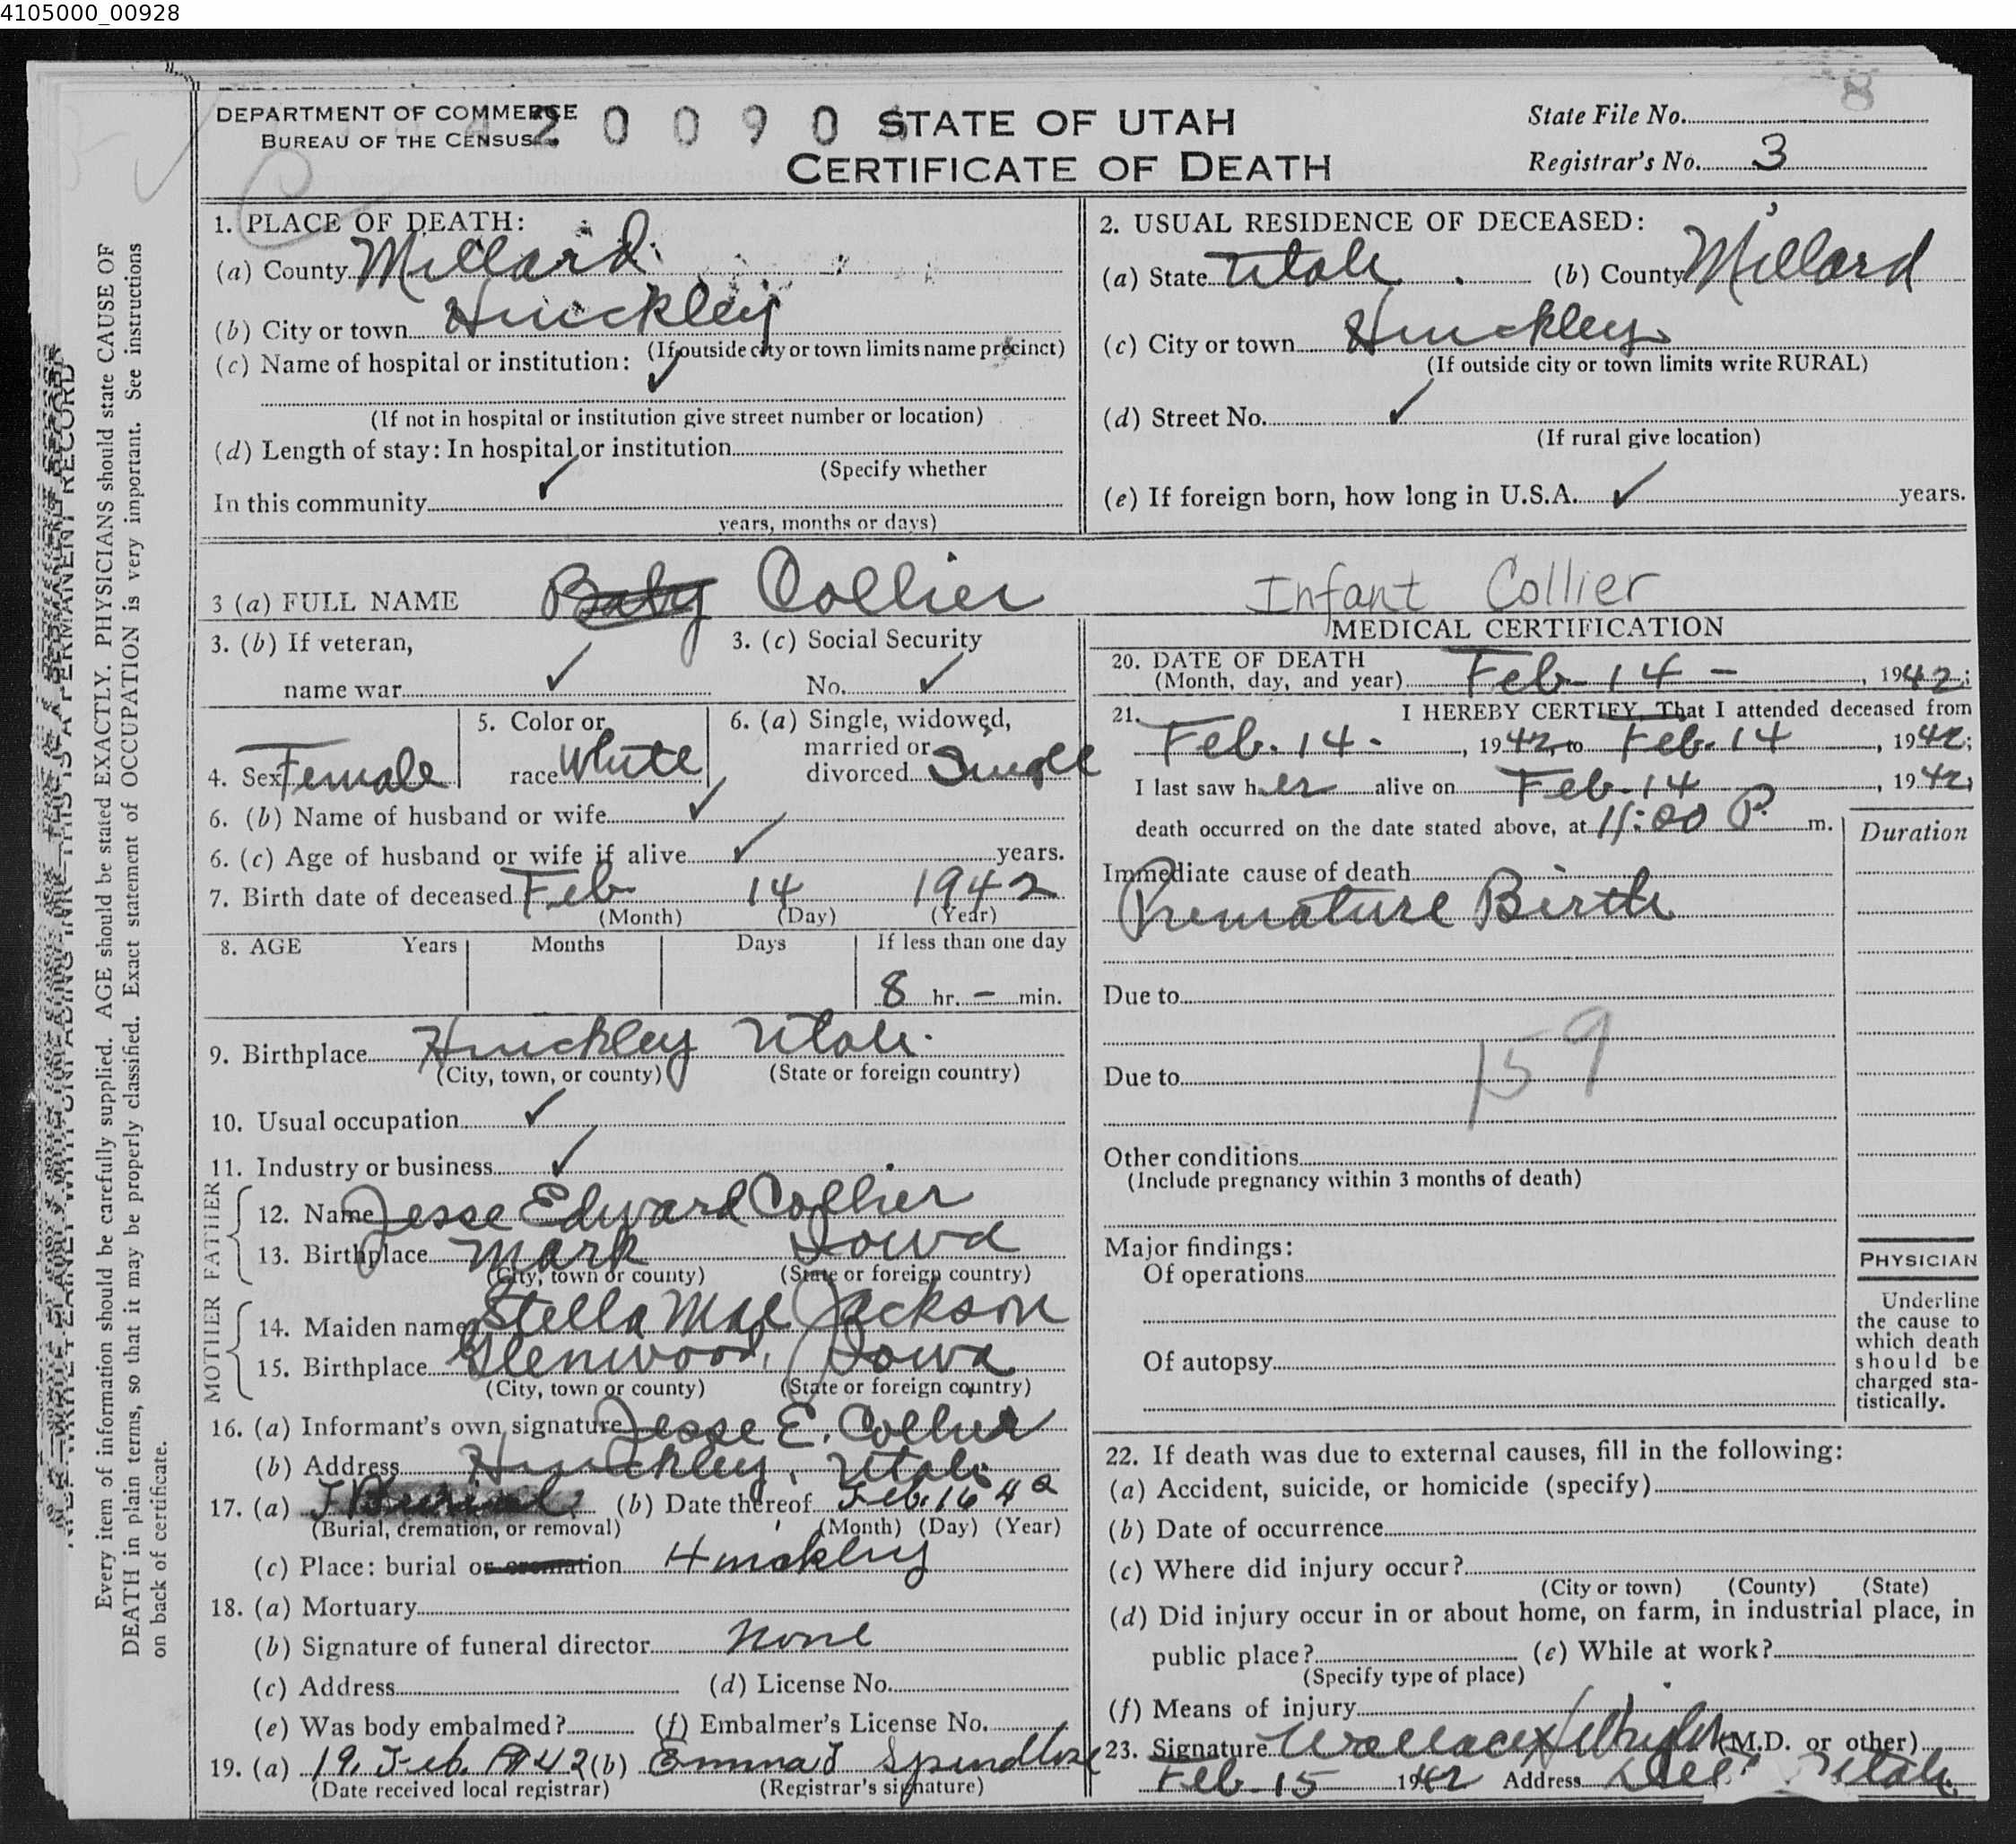 4105000_00928
8
DEPARTMENT OF COMMERCE
BUREAU OF THE CENSUS
2 0 0 9 0
STATE OF UTAH
CERTIFICATE OF DEATH
State File No.
Registrar's No. 3
1. PLACE OF DEATH:
(a) County Millard
(b) City or town Hinckley
(If outside city or town limits name precinct)
(c) Name of hospital or institution: ✓
(If not in hospital or institution give street number or location)
(d) Length of stay: In hospital or institution
(Specify whether
In this community ✓
years, months or days)
2. USUAL RESIDENCE OF DECEASED:
(a) State Utah (b) County Millard
(c) City or town Hinckley
(If outside city or town limits write RURAL)
(d) Street No. ✓
(If rural give location)
(e) If foreign born, how long in U.S.A. ✓ years.
3 (a) FULL NAME Baby Collier Infant Collier
3. (b) If veteran,
name war ✓
3. (c) Social Security
No. ✓
4. Sex Female
5. Color or
race White
6. (a) Single, widowed,
married or
divorced Single
6. (b) Name of husband or wife ✓
6. (c) Age of husband or wife if alive ✓ years.
7. Birth date of deceased Feb 14 1942
(Month) (Day) (Year)
8. AGE Years Months Days If less than one day
8 hr. – min.
9. Birthplace Hinckley Utah.
(City, town, or county) (State or foreign country)
10. Usual occupation ✓
11. Industry or business ✓
FATHER
12. Name Jesse Edward Collier
13. Birthplace Mark Iowa
(City, town or county) (State or foreign country)
MOTHER
14. Maiden name Stella Mae Jackson
15. Birthplace Glenwood, Iowa
(City, town or county) (State or foreign country)
16. (a) Informant's own signature Jesse E. Collier
(b) Address Hinckley, Utah
17. (a) Burial (b) Date thereof Feb. 16 42
(Burial, cremation, or removal) (Month) (Day) (Year)
(c) Place: burial or cremation Hinckley
18. (a) Mortuary
(b) Signature of funeral director None
(c) Address (d) License No.
(e) Was body embalmed? (f) Embalmer's License No.
19. (a) 19. Feb. 1942 (b) Emma J
(Date received local registrar) (Registrar's signature)
MEDICAL CERTIFICATION
20. DATE OF DEATH
(Month, day, and year) Feb 14 – , 1942;
21. I HEREBY CERTIFY, That I attended deceased from
Feb. 14. , 1942, to Feb. 14 , 1942;
I last saw her alive on Feb. 14 , 1942,
death occurred on the date stated above, at 11:00 P. m.
Duration
Immediate cause of death
Premature Birth
Due to
159
Due to
Other conditions
(Include pregnancy within 3 months of death)
Major findings:
Of operations
Of autopsy
PHYSICIAN
Underline
the cause to
which death
should be
charged sta-
tistically.
22. If death was due to external causes, fill in the following:
(a) Accident, suicide, or homicide (specify)
(b) Date of occurrence
(c) Where did injury occur?
(City or town) (County) (State)
(d) Did injury occur in or about home, on farm, in industrial place, in
public place? (e) While at work?
(Specify type of place)
(f) Means of injury
23. Signature Wallace (M.D. or other)
Feb 15 1942 Address Utah
THIS IS A PERMANENT RECORD
Every item of information should be carefully supplied. AGE should be stated EXACTLY. PHYSICIANS should state CAUSE OF
DEATH in plain terms, so that it may be properly classified. Exact statement of OCCUPATION is very important. See instructions
on back of certificate.